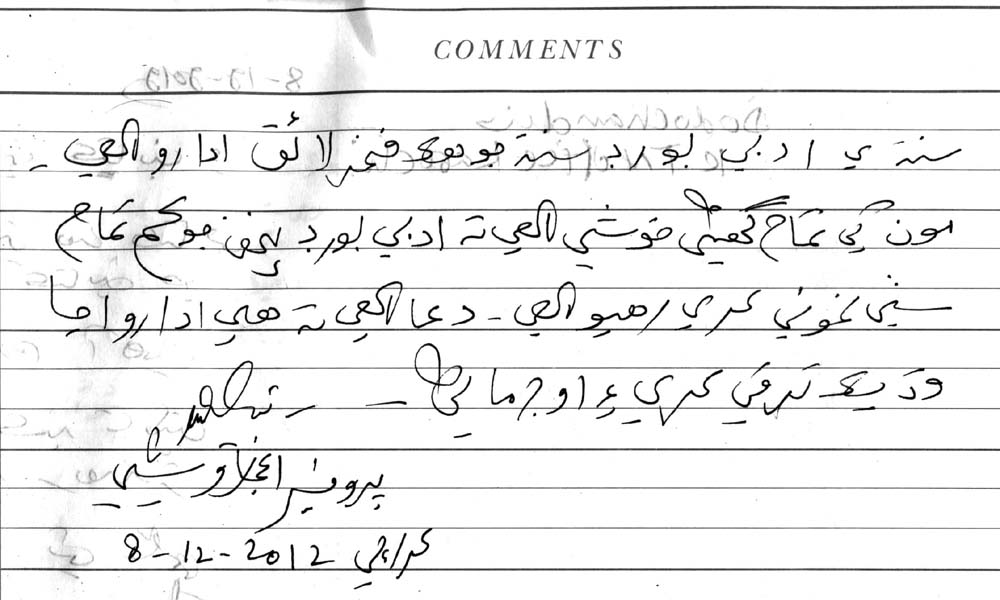 COMMENTS
سنڌي ادبي بورڊ سنڌ جو هڪ فخر لائق ادارو آهي ـ
مون کي تمام گھڻي خوشي آهي ته ادبي بورڊ پنهنجو ڪم تمام
سٺي نموني ڪري رهيو آهي ـ دعا آهي ته هي ادارو اڃا
وڌيڪ ترقي ڪري ۽ اوج ماڻي ـ
پروفيسر اعجاز قريشي
ڪراچي 8-12-2012